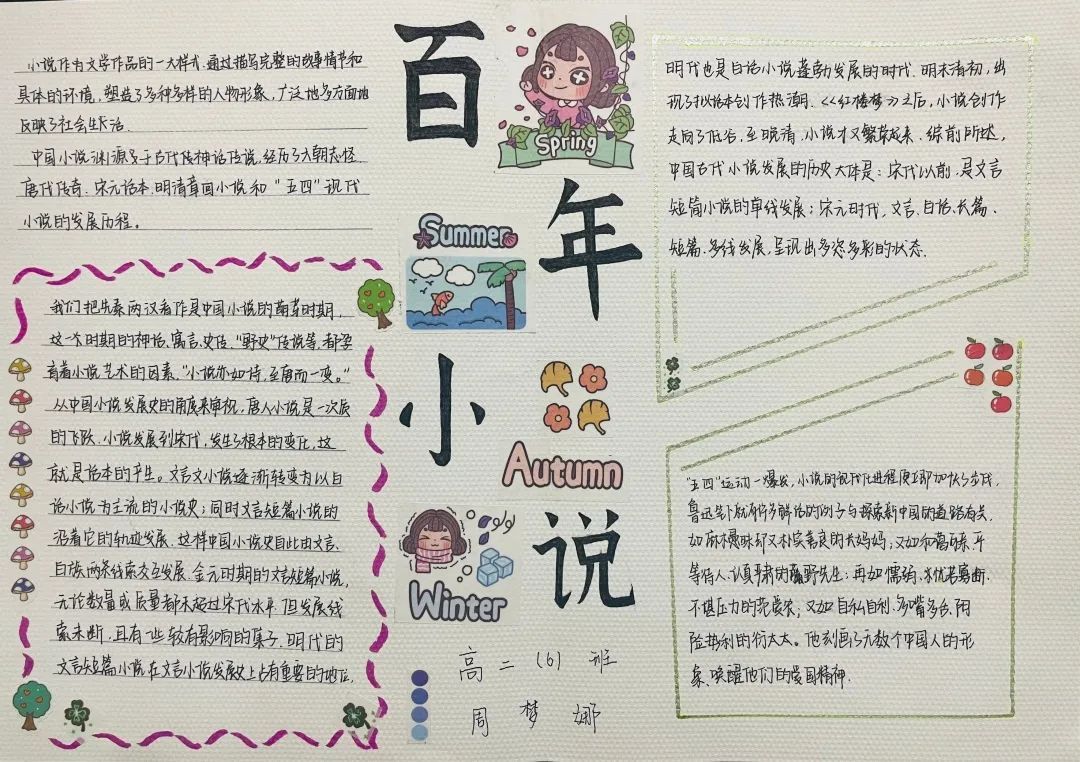 百年小说
Spring
Summer
Autumn
Winter
高二(6)班
周梦娜
小说作为文学作品的一大样式,通过描写完整的故事情节和
具体的环境,塑造了多种多样的人物形象,广泛地多方面地
反映了社会生活。
中国小说渊源于古代传神话传说,经历了六朝志怪、
唐代传奇、宋元话本、明清章回小说和"五四"现代
小说的发展历程。
我们把先秦两汉看作是中国小说的萌芽时期,
这一个时期的神话、寓言、史传、"野史"传说等,都孕
育着小说艺术的因素。"小说亦如诗,至唐而一变。"
从中国小说发展史的角度来审视,唐人小说是一次质
的飞跃。小说发展到宋代,发生了根本的变化,这
就是话本的产生。文言文小说逐渐转变为以白
话小说为主流的小说史;同时文言短篇小说的
沿着它的轨迹发展,这样中国小说史自此由文言、
白话两条线索交互发展。金元时期的文言短篇小说,
无论数量或质量都未超过宋代水平,但发展线
索未断,且有一些较有影响的集子。明代的
文言短篇小说在文言小说发展史上占有重要的地位。
明代也是白话小说蓬勃发展的时代。明末清初,出
现了拟话本创作热潮。《红楼梦》之后,小说创作
走向了低谷,至晚清,小说才又繁荣起来。综前所述,
中国古代小说发展的历史大体是:宋代以前,是文言
短篇小说的单线发展;宋元时代,文言、白话、长篇、
短篇、多线发展,呈现出多姿多彩的状态。
"五四"运动一爆发,小说的现代化进程便立即加快了步伐,
鲁迅笔下就有许多鲜活的例子与探索新中国的道路有关,
如麻木愚昧却又朴实善良的长妈妈;又如和蔼可亲、平
等待人、认真严肃的藤野先生;再如懦弱、
不堪压力的范爱农;又如自私自利、多嘴多舌、阴
险势利的衍太太。他刻画了无数个中国人的形
象,唤醒他们的爱国精神。